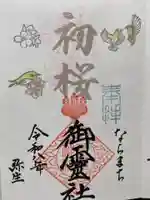 初桜
奉拝
ならまち
御霊社
令和六年
弥生